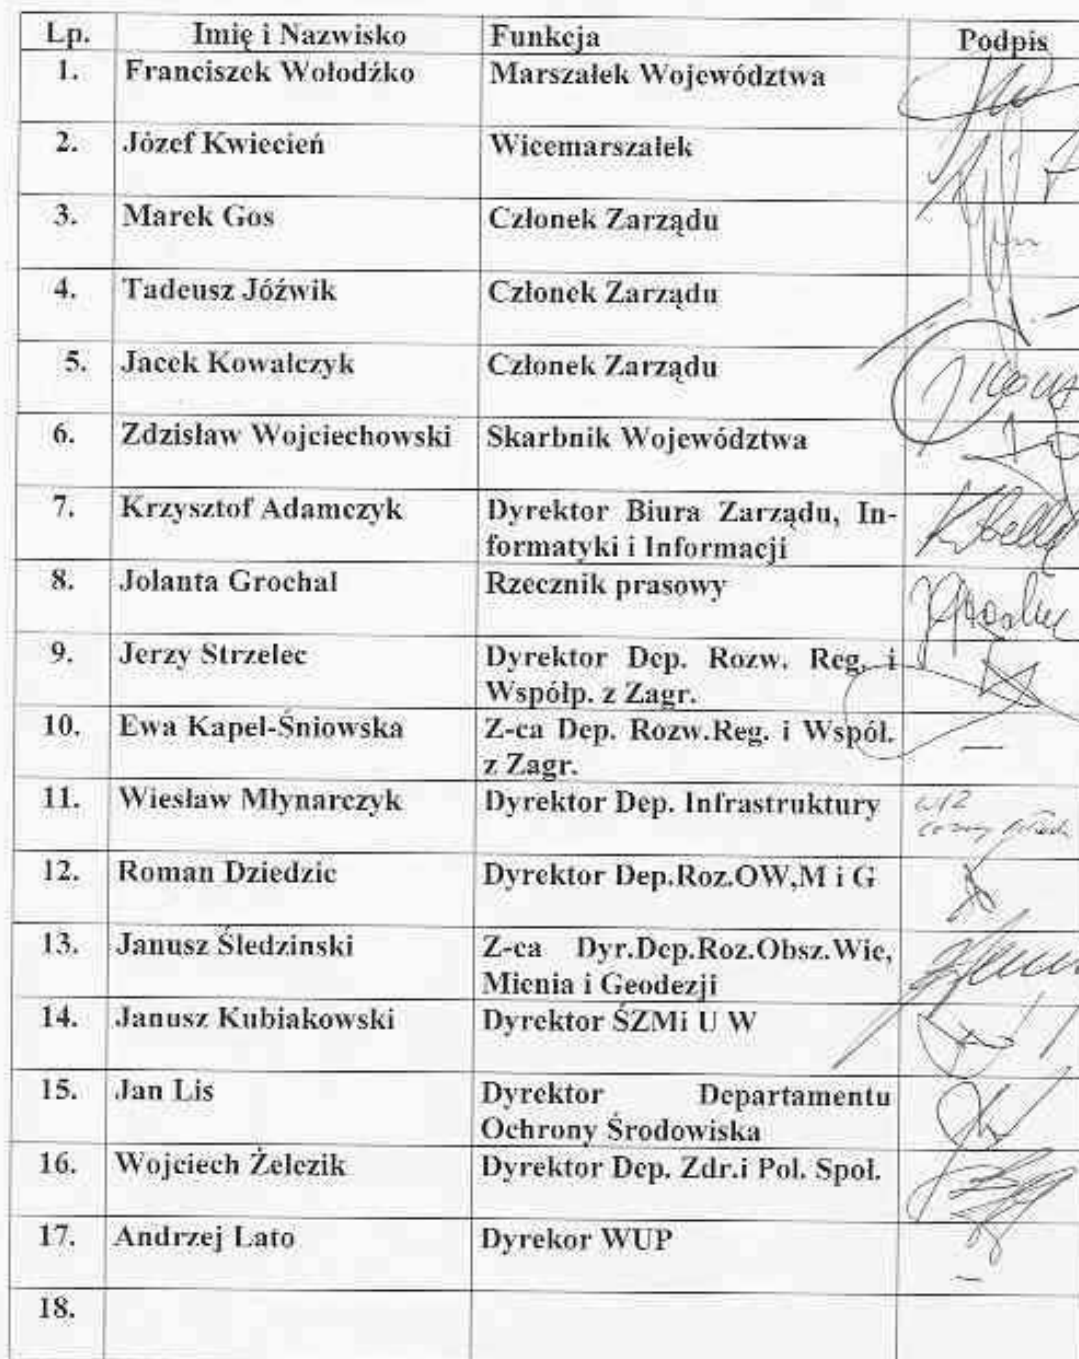 Lp. Imię i Nazwisko Funkcja Podpis
1. Franciszek Wołodźko Marszałek Województwa
2. Józef Kwiecień Wicemarszałek
3. Marek Gos Członek Zarządu
4. Tadeusz Jóźwik Członek Zarządu
5. Jacek Kowalczyk Członek Zarządu
6. Zdzisław Wojciechowski Skarbnik Województwa
7. Krzysztof Adamczyk Dyrektor Biura Zarządu, In-
formatyki i Informacji
8. Jolanta Grochal Rzecznik prasowy
9. Jerzy Strzelec Dyrektor Dep. Rozw. Reg. i
Współp. z Zagr.
10. Ewa Kapel-Śniowska Z-ca Dep. Rozw.Reg. i Współ.
z Zagr.
11. Wiesław Młynarczyk Dyrektor Dep. Infrastruktury
12. Roman Dziedzic Dyrektor Dep.Roz.OW,M i G
13. Janusz Śledzinski Z-ca Dyr.Dep.Roz.Obsz.Wie,
Mienia i Geodezji
14. Janusz Kubiakowski Dyrektor ŚZMi U W
15. Jan Lis Dyrektor Departamentu
Ochrony Środowiska
16. Wojciech Żelezik Dyrektor Dep. Zdr.i Pol. Społ.
17. Andrzej Lato Dyrekor WUP
18.